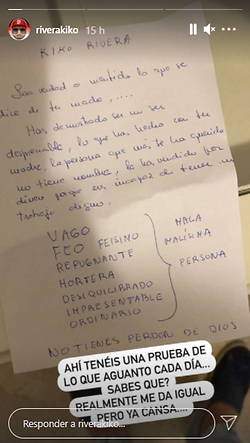 riverakiko 15 h
KIKO RIVERA
Sea verdad o mentira lo que se
dice de tu madre .....
Has demostrado ser un ser
despreciable, lo que has hecho con tu
madre, la persona que más te ha querido
no tiene nombre, la has vendido por
dinero porque eres incapaz de tener un
trabajo digno.
VAGO
FEO FEISIMO MALA
REPUGNANTE MALISIMA
HORTERA PERSONA
DESIQUILIBRADO
IMPRESENTABLE
ORDINARIO
NO TIENES PERDON DE DIOS
AHÍ TENÉIS UNA PRUEBA DE
LO QUE AGUANTO CADA DÍA...
SABES QUE?
REALMENTE ME DA IGUAL
PERO YA CANSA....
Responder a riverakiko...